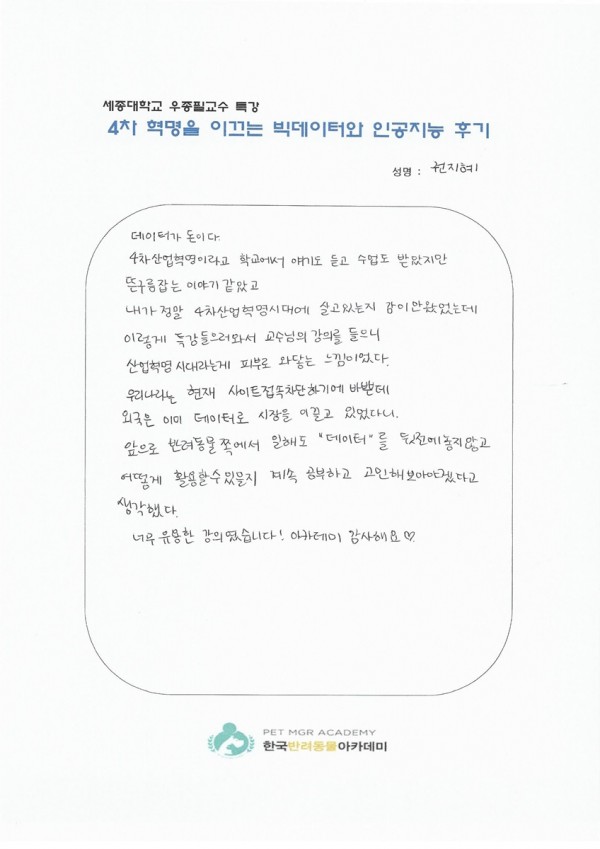 세종대학교 우종필교수 특강
4차 혁명을 이끄는 빅데이터와 인공지능 후기
성명 : 권지혜
데이터가 돈이다.
4차산업혁명이라고 학교에서 얘기도 듣고 수업도 받았지만
뜬구름잡는 이야기 같았고
내가 정말 4차산업혁명시대에 살고있는지 감이안왔었는데
이렇게 특강들으러와서 교수님의 강의를 들으니
산업혁명시대라는게 피부로 와닿는 느낌이었다.
우리나라는 현재 사이트접속차단하기에 바쁜데
외국은 이미 데이터로 시장을 이끌고 있었다니.
앞으로 반려동물 쪽에서 일해도 "데이터"를 뒷전에놓지않고
어떻게 활용할수있을지 계속 공부하고 고민해보아야겠다고
생각했다.
너무 유용한 강의였습니다! 아카데미 감사해요♡
PET MGR ACADEMY
한국반려동물아카데미